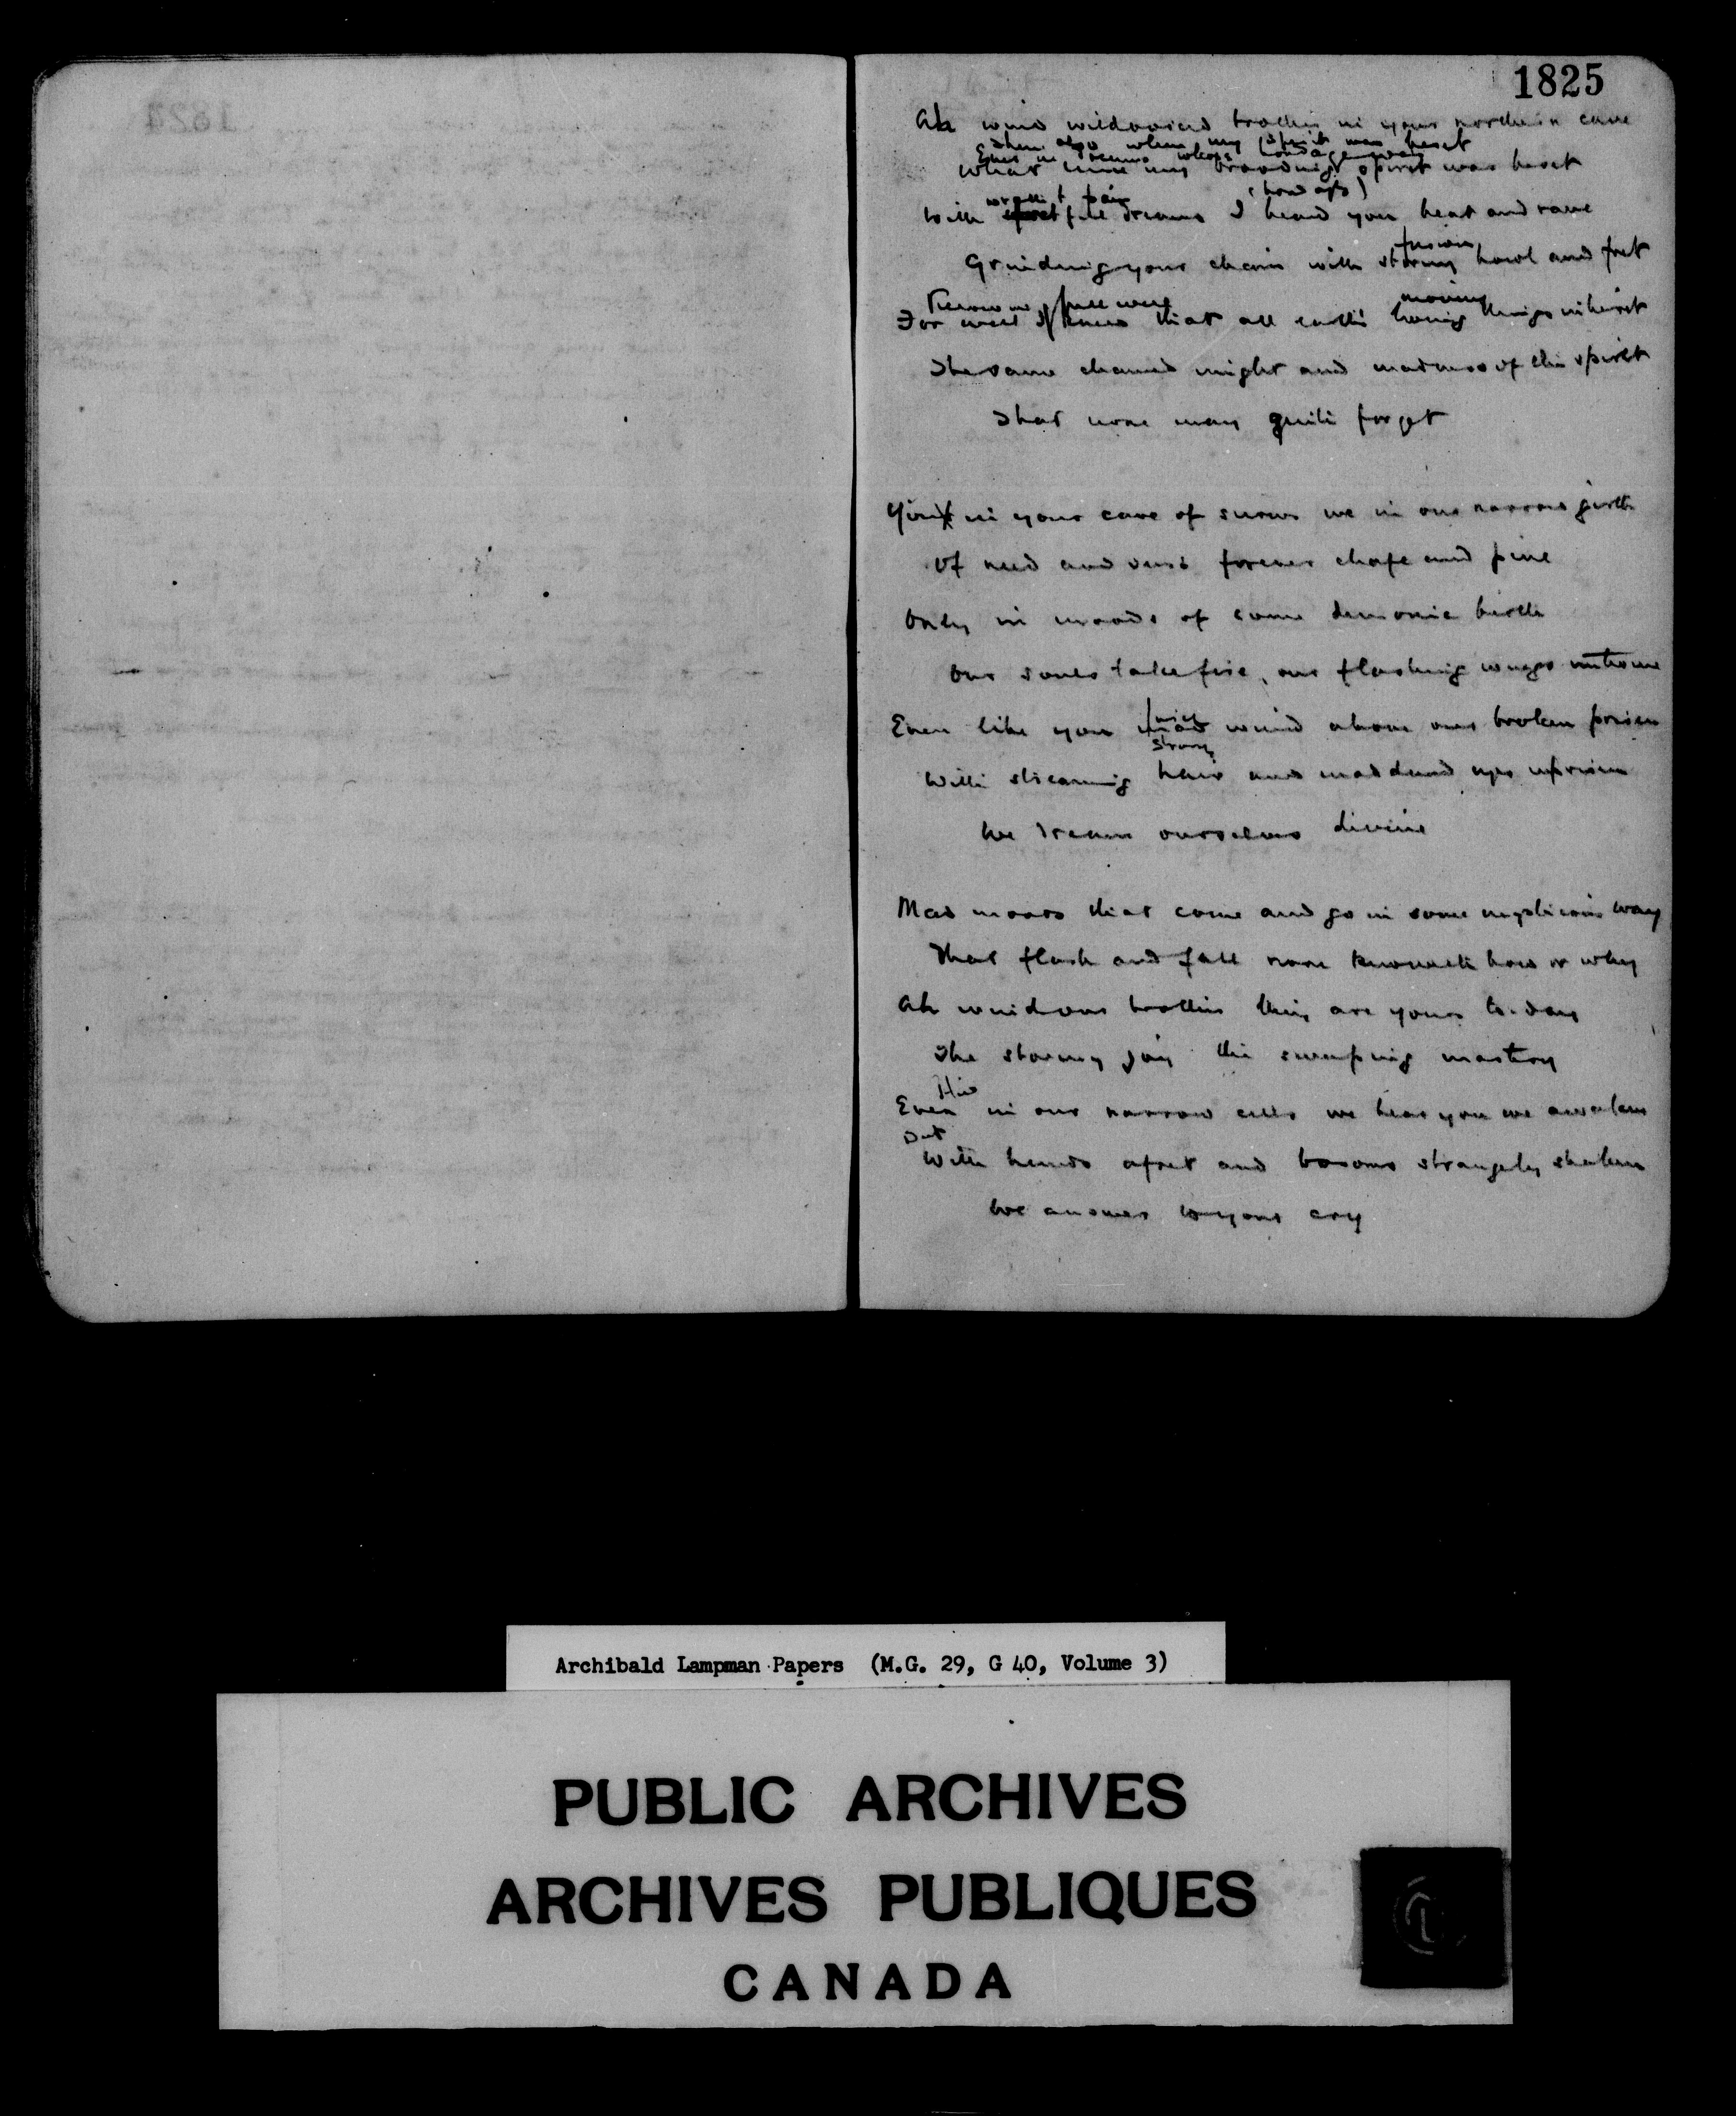 1825
Ah wind wildvoiced brother in your northern cave
Then also when my spirit was beset
Even in dreams whose bondage
What time my brooding spirit was beset
wrath & pain (bondage)
With fretful dreams I heard you beat and rave
furious
Grinding your chain with stormy howl and fret
full well moving
For well I knew that all earth's living things inherit
The same chained might and madness of the spirit
That none may quite forget
You in your cave of snows we in our narrow girth
Of need and sense forever chafe and pine
Only in moods of some demonic birth
Our souls take fire, our flashing wings untwine
wild
Even like you mad wind above our broken prison
strong
With streaming hair and maddened eyes uprisen
We dream ourselves divine
Mad moods that come and go in some mysterious way
That flash and fall none knoweth how or why
Ah wind our brother they are yours to-day
The stormy joy the sweeping mastery
Even in our narrow cells we hear you we awaken
With hands afret and bosoms strangely shaken
We answer to your cry
Archibald Lampman Papers (M.G. 29, G 40, Volume 3)
PUBLIC ARCHIVES
ARCHIVES PUBLIQUES
CANADA